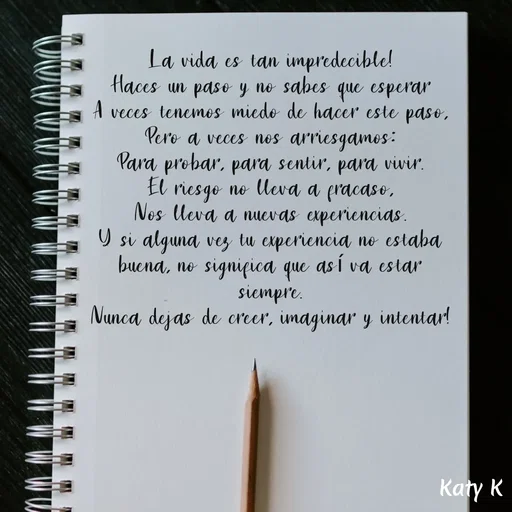 La vida es tan impredecible!
Haces un paso y no sabes que esperar
A veces tenemos miedo de hacer este paso,
Pero a veces nos arriesgamos:
Para probar, para sentir, para vivir.
El riesgo no lleva a fracaso,
Nos lleva a nuevas experiencias.
Y si alguna vez tu experiencia no estaba
buena, no significa que así va estar
siempre.
Nunca dejas de creer, imaginar y intentar!
Katy K